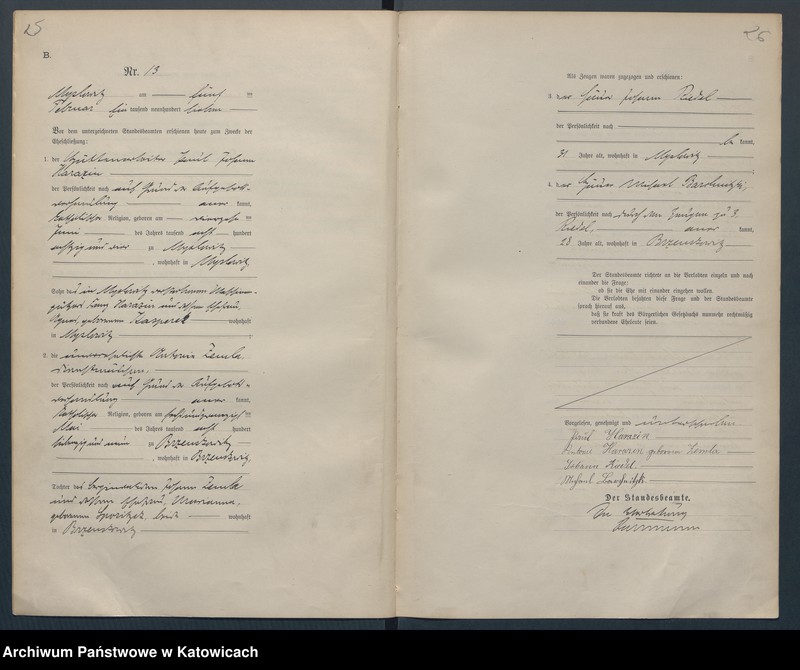 25
B.
Nr. 13
Myslowitz am fünf ten
Februar Ein tausend neunhundert sieben
Vor dem unterzeichneten Standesbeamten erschienen heute zum Zwecke der
Eheschließung:
1. der Hüttenarbeiter Johann
Karazin
der Persönlichkeit nach auf Grund der Aufgebots-
verhandlung aner kannt,
katholischer Religion, geboren am ten
Juni des Jahres tausend acht hundert
achtzig und vier zu Myslowitz
, wohnhaft in Myslowitz
Sohn des in Myslowitz verstorbenen
Karazin und dessen Ehefrau,
geborenen Kasperek wohnhaft
in Myslowitz ;
2. die unverehelichte Antonie Zemla
der Persönlichkeit nach auf Grund der Aufgebots-
verhandlung aner kannt,
katholischer Religion, geboren am ten
Mai des Jahres tausend acht hundert
siebenzig und neun zu Brzenskowitz
, wohnhaft in Brzenskowitz
Tochter des Johann Zemla
und dessen Ehefrau, Marianna,
geborenen beide wohnhaft
in Brzenskowitz
26
Als Zeugen waren zugezogen und erschienen:
3. der Johann Riedel
der Persönlichkeit nach
be kannt,
31 Jahre alt, wohnhaft in Myslowitz ;
4. der Michael
der Persönlichkeit nach durch den Zeugen zu 3.
Riedel, aner kannt,
23 Jahre alt, wohnhaft in Brzenskowitz
Der Standesbeamte richtete an die Verlobten einzeln und nach
einander die Frage:
ob sie die Ehe mit einander eingehen wollen.
Die Verlobten bejahten diese Frage und der Standesbeamte
sprach hierauf aus,
daß sie kraft des Bürgerlichen Gesetzbuchs nunmehr rechtmäßig
verbundene Eheleute seien.
Vorgelesen, genehmigt und unterschrieben
Karazin
Antonie Karazin geborene Zemla
Johann Riedel.
Michael
Der Standesbeamte.
In Vertretung
Archiwum Państwowe w Katowicach